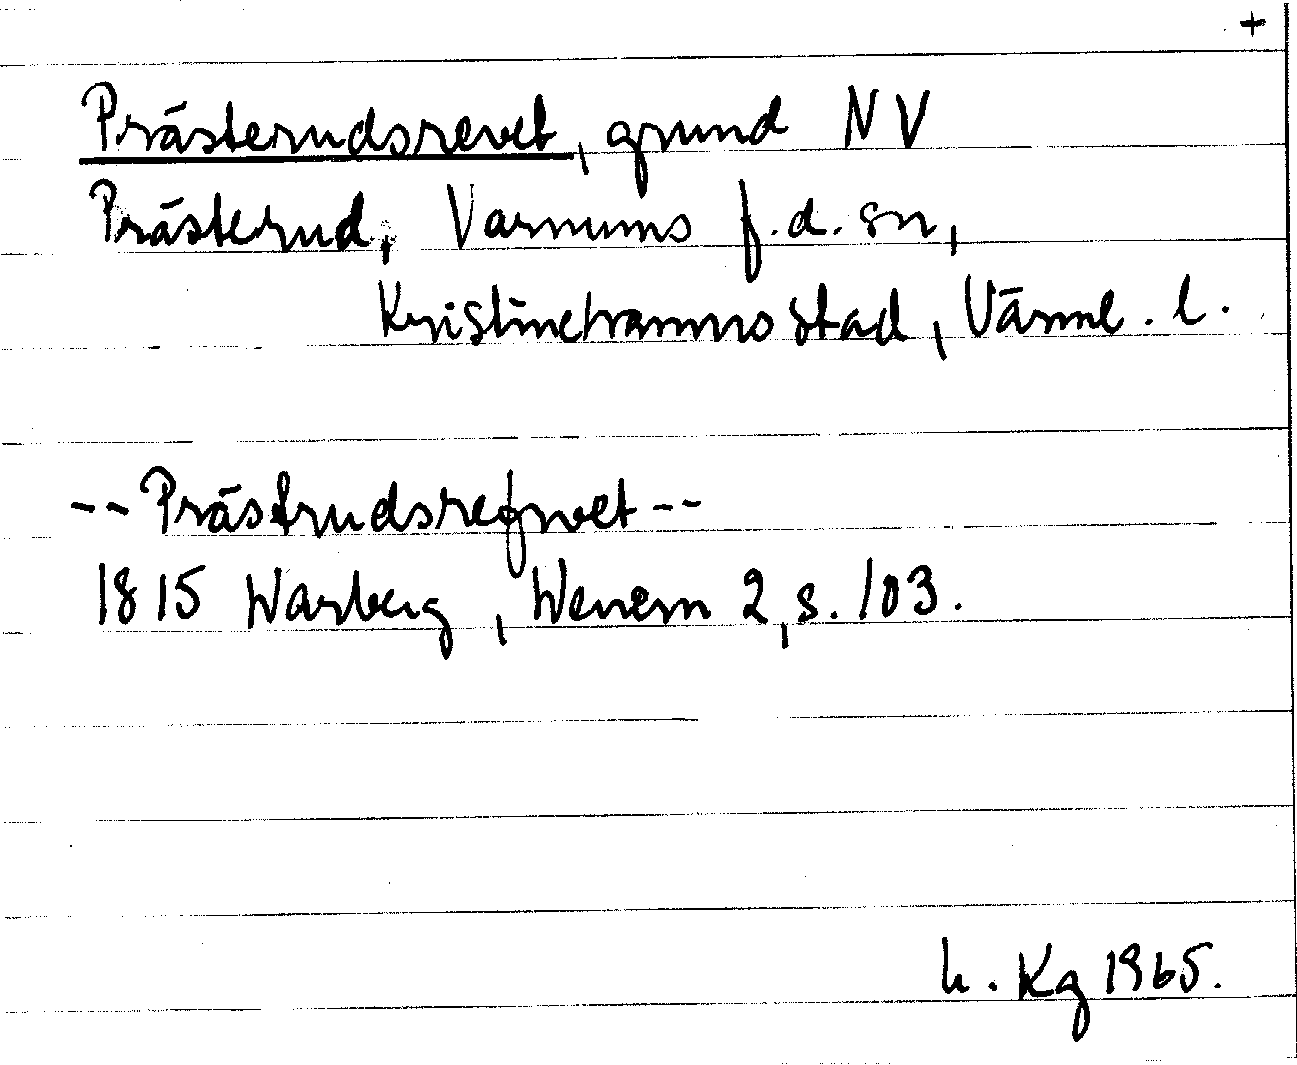 +
Prästerudsrevet, grund NV
Prästerud, Varnums f.d. sn,
Kristinehamns stad, Värml. l.
-- Prästrudsrefwet --
1815 Warberg, Wenern 2, s. 103.
h. Kg 1965.